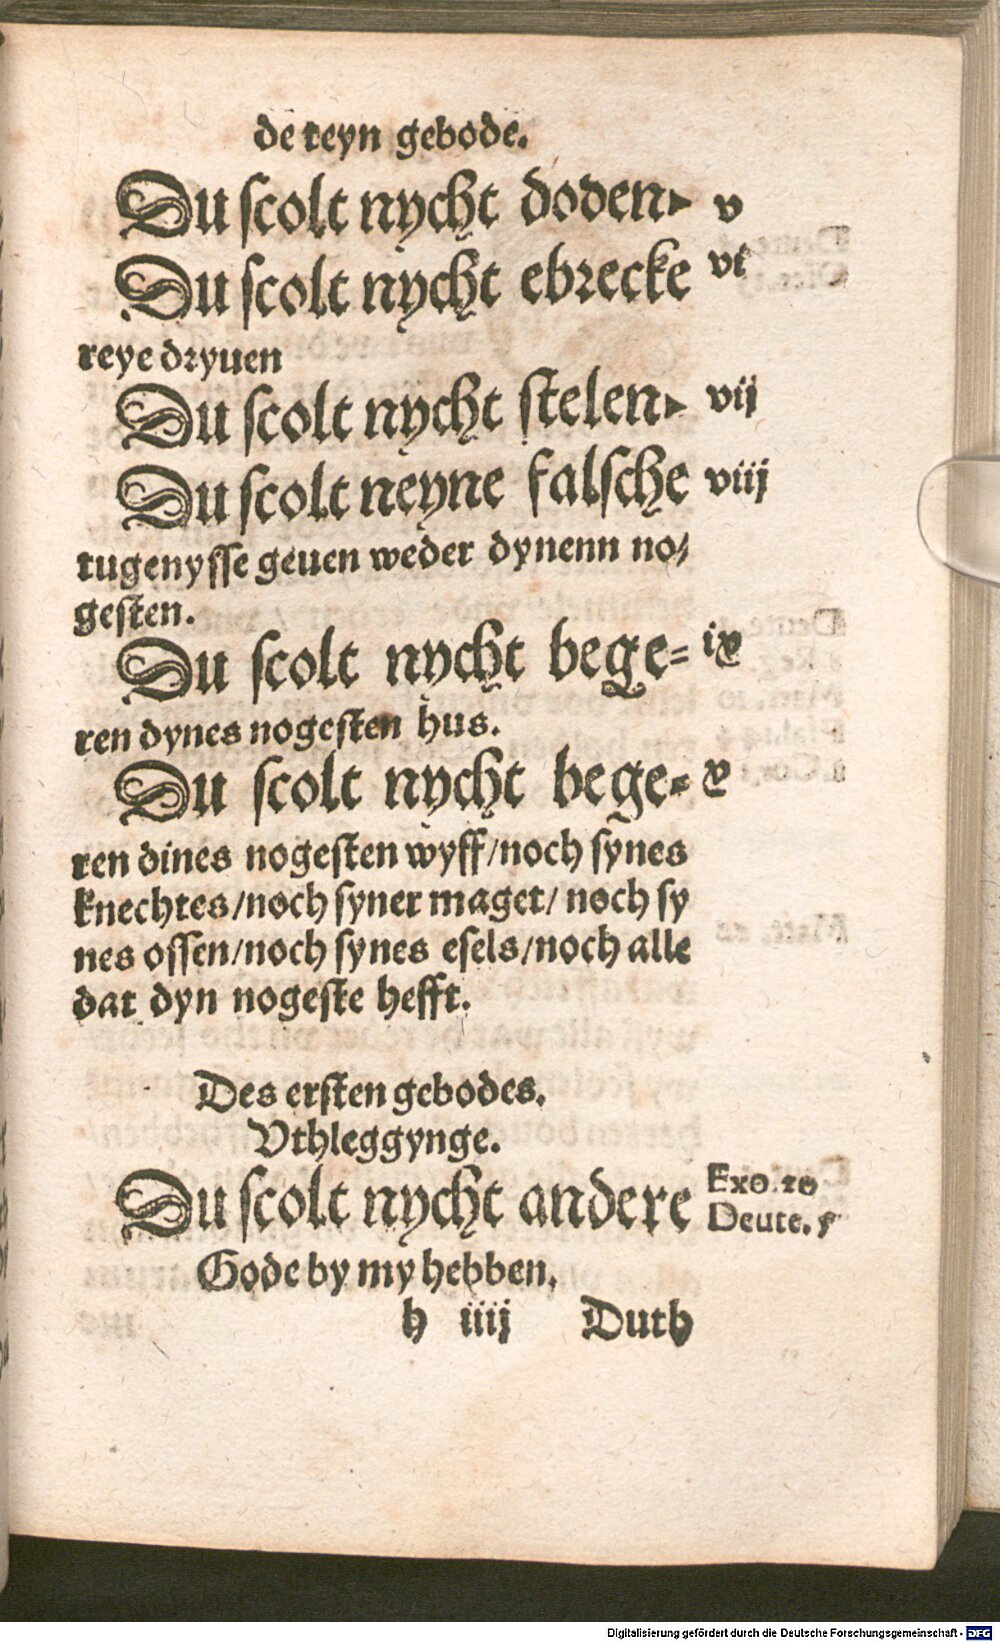 de teyn gebode.
Du scolt nycht doden. v
Du scolt nycht ebrecke vi
reye dryuen
Du scolt nycht stelen. vij
Du scolt neyne falsche viij
tugenysse geuen weder dynenn no/
gesten.
Du scolt nycht bege= ix
ren dynes nogesten hus.
Du scolt nycht bege= x
ren dines nogesten wyff/noch synes
knechtes/noch syner maget/ noch sy
nes ossen/noch synes esels/noch alle
dat dyn nogeste hefft.
Des ersten gebodes.
Vthleggynge.
Du scolt nycht andere Exo. 20
Gode by my hebben. Deute. 5
h iiij Duth
Digitalisierung gefördert durch die Deutsche Forschungsgemeinschaft - DFG